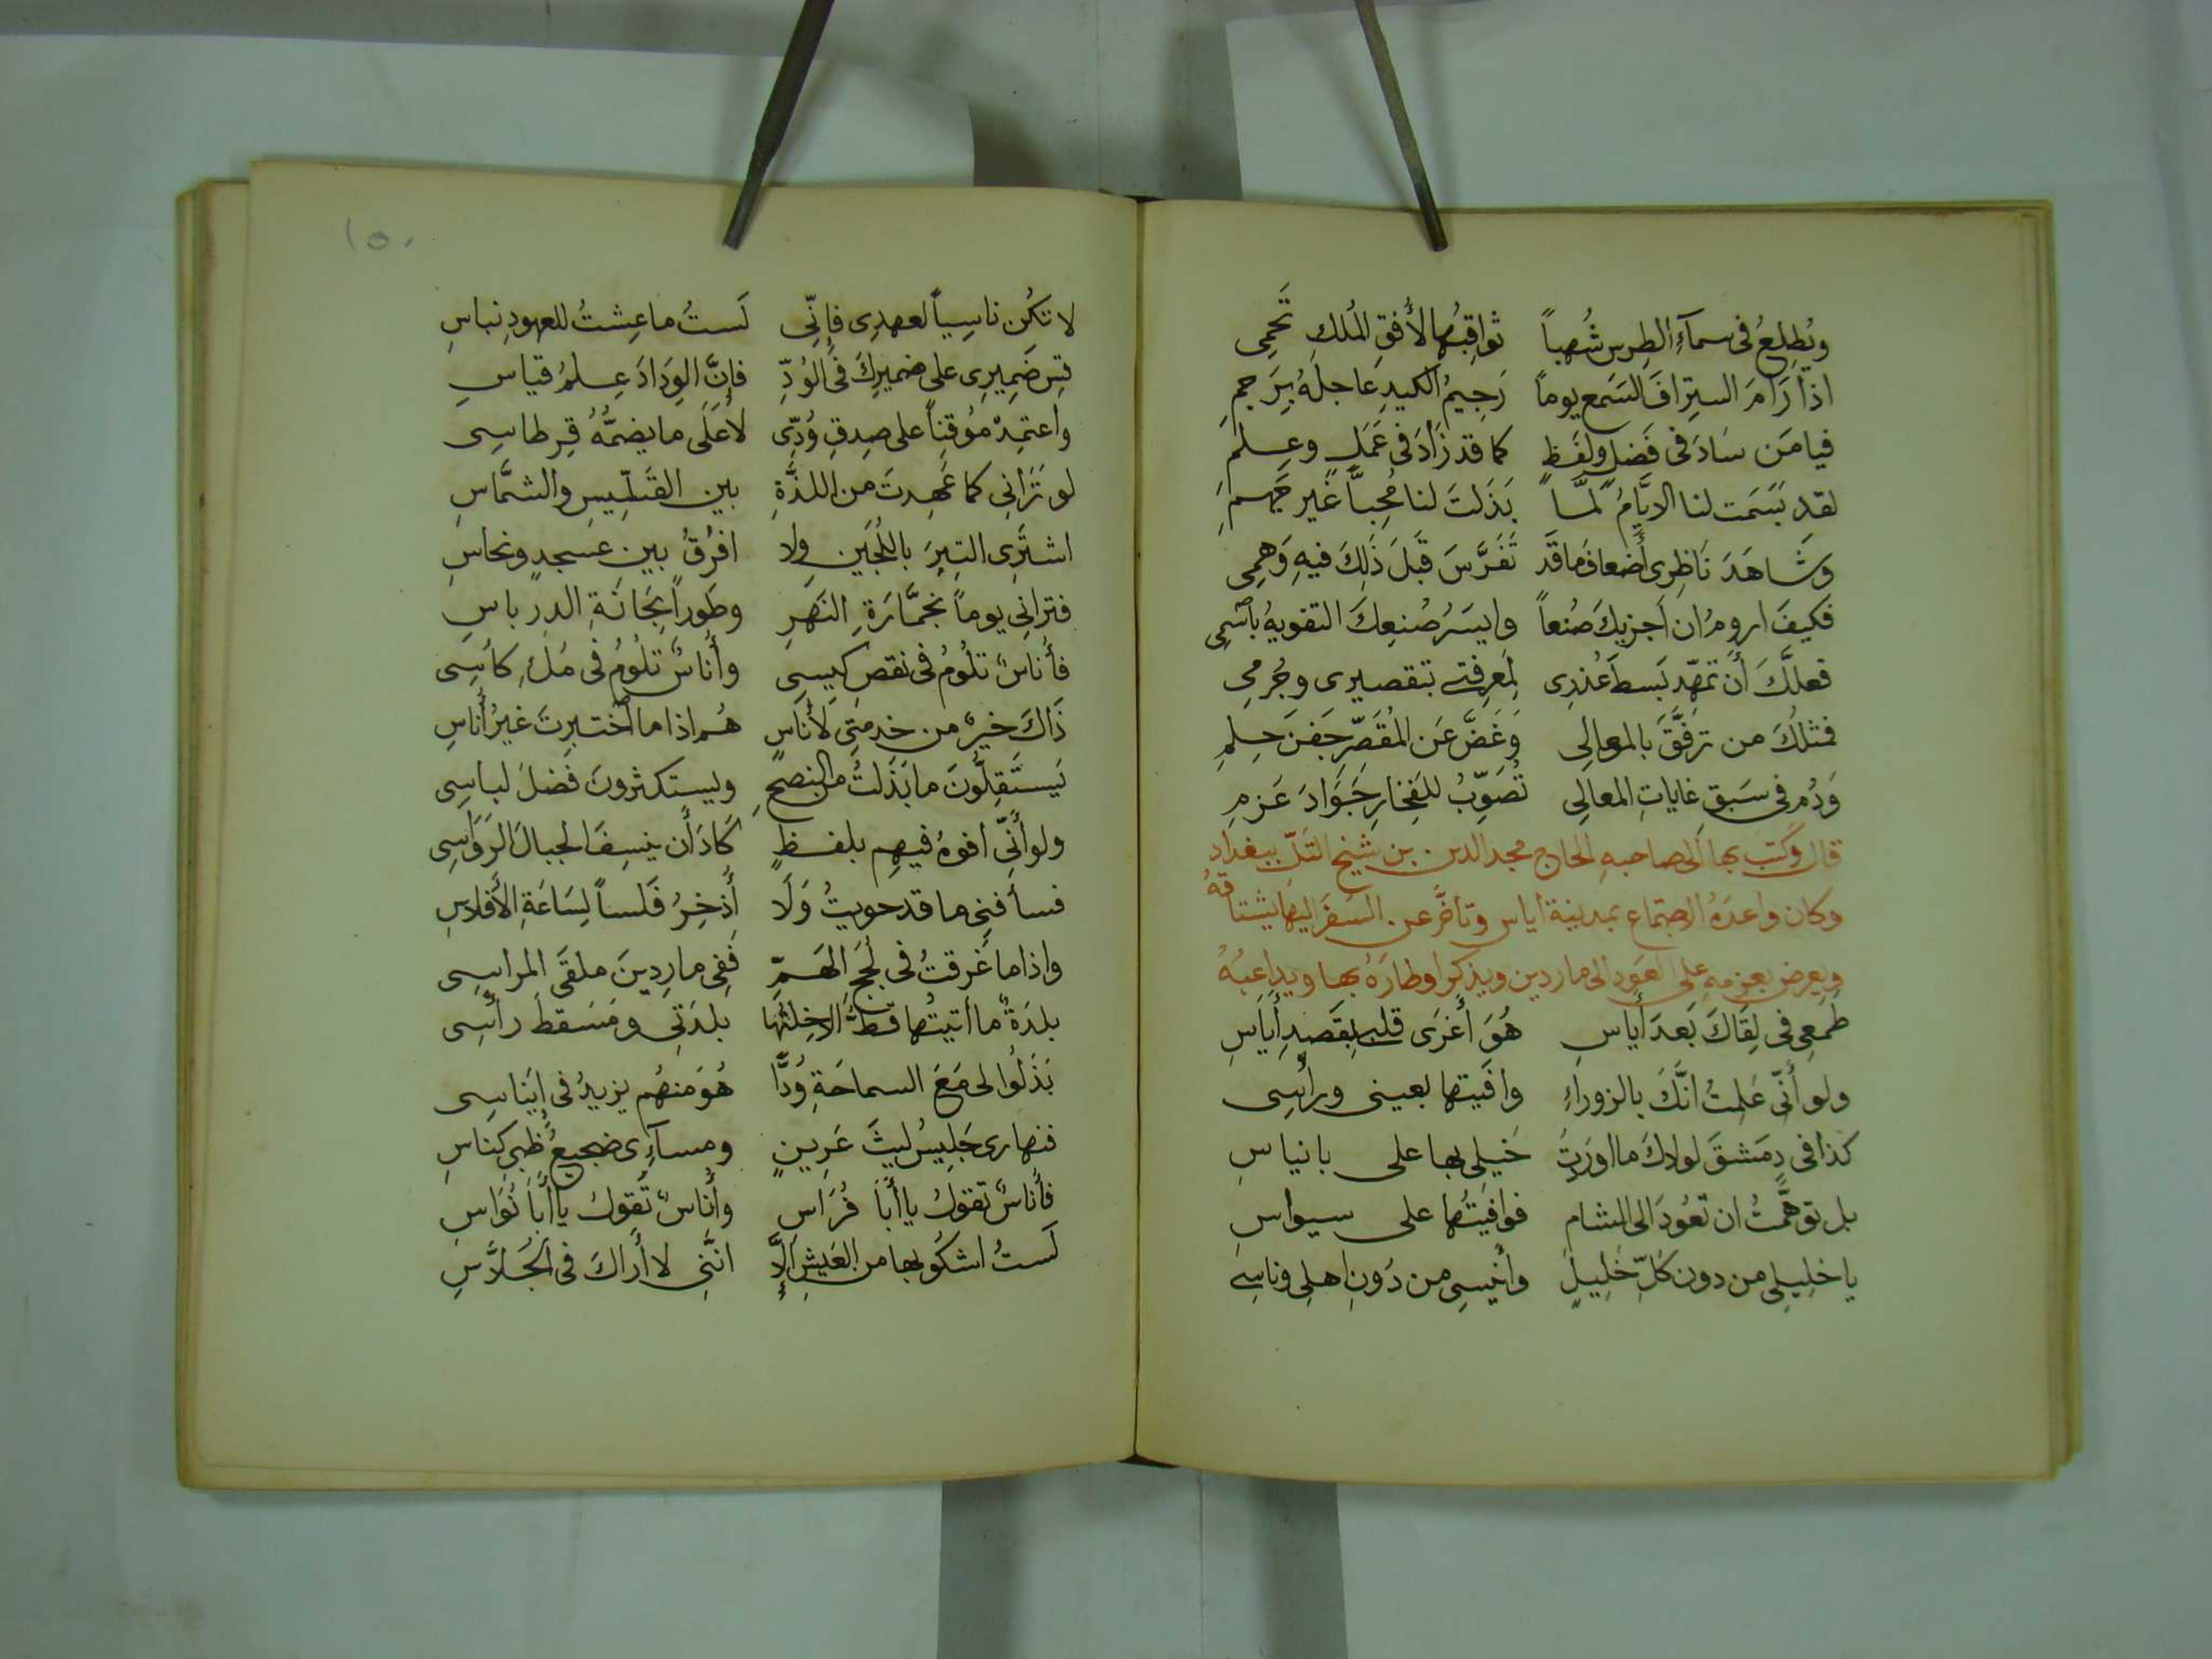 ويُطلِعُ فى سمآءِ الطِرسِ شُهباً ثواقِبُها لأُفقِ المُلكِ تَحمِى
اذا رَامَ استِراقَ السَمعِ يوماً رَجِيمُ الكيدِ عاجلَهُ بِرَجمِ
فيا مَن سَادَ فى فَضلٍ ولَفظٍ كما قد زَادَ فى عَمَلٍ وعِلمِ
لقد بَسَمَت لنا الايَّامُ لمَّا بَذَلتَ لنا مُحِبّاً غَير جَهمِ
وشَاهَدَ نَاظِرِى أَضعافَ مَا قَد تَفَرَّسَ قَبلَ ذَلِكَ فيهِ وَهمِى
فكيفَ ارومُ ان اَجزيكَ صُنعاً وايسَرُ صُنعِكَ التنويهُ باسمِى
فعلَّكَ أَن تمَهّد بَسطَ عُذرِى لمَعرِفتى بتقصيرى وجُرمِى
فمثلُكَ من تَرَفَّقَ بالموالِى وَغَضَّ عَن المُقَصِّرِ جَفنَ حِلمِ
وَدُم فى سَبقِ غاياتِ المعالِى تُصَوِّبُ للفَخارِ جَوَادَ عَزمِ
قال وكَتَب بها الى صاحبهِ الحاج مجد الدين بن شيخ التَلّ ببغداد
وكان واعدَهُ الاجتماع بمدينة اياس وتاخَّر عن السَفَر اليها يشتاقُهُ
ويعرض بعزمهِ على العَود الى ماردين ويذكر اوطارَهُ بها ويداعبُهُ
طَمعِى فى لِقَاكَ بَعدَ أَياسِ هُوَ أَغرَى قلبى بِقَصدِ أَيَاسِ
ولو أَنّى عَلِمتُ انَّكَ بالزوراءِ وافَيتها بعينى ورأسِى
كذا فى دِمَشقَ لولاكَ ما اورَيتُ خَيلِى بها على بانياسِ
بل توهَّمتُ ان تعُودَ الى الشام فوافَيتُها على سيواسِ
يا خليلِى من دون كلّ خَلِيلٍ وأَنيسِى من دُونِ اهلِى وناسِى
١٥٠
لا تكُن ناسِياً لعهدِى فإنّى لَستُ ما عِشتُ للعهودِ بناسِ
قِس ضَمِيرِى على ضميرِكَ فى الوُدِّ فإنَّ الوِدَادَ عِلمُ قياسِ
واعتمِدْ مُوقِناً على صِدقِ وُدِّى لا عَلَى ما يضمُّهُ قِرطاسِى
لو تَرَانى كما عَهِدتَ من اللذَّةِ بين القَسِّيسِ والشمَّاسِ
اشترِى التِبرَ باللُجَينِ ولا افرُقُ بين عسجدٍ ونحاسِ
فترانى يوماً بخمَّارَةِ النَهَرِ وطَوراً بِجَانَةِ الدرباسِ
فأُناسٌ تلُومُ فى نقصِ كِيسِى وأُناسٌ تلُومُ فى مَلءِ كأسِى
ذَاكَ خيرٌ من خدمَتِى لأُنَاسٍ هُم اذا ما اختبرتَ غيرُ أُناسِ
يَستَقِلُّونَ ما بَذَلتُ من النصحِ ويستكثرونَ فَضلَ لباسِى
ولو أَنّى افوهُ فيهم بلفظٍ كَادَ أَن ينسِفَ الجبالَ الرَوَاسِى
فسأفنِى ما قد حويتُ وَلَا أَذخِرُ فَلساً لِسَاعَةِ الأَفلاسِ
واذا ما غَرقتُ فى لُجَجِ الهَمِّ فَفِى مارِدِينَ ملقَى المراسِى
بلدَةٌ ما أتيتُها قطُّ الا خِلتُها بلدَتى ومَسقطَ رأسِى
بَذَلُوا لى مَعَ السماحَةِ وُدًّا هُوَ منهُم يزيدُ فى اِيناسِى
فنهارى جَلِيسُ لَيثِ عَرِينٍ ومسآءِى ضجيعُ ظبىِ كناسِ
فأُناسٌ تقولُ يا أَبا فُرَاسِ وأُناسٌ تَقولُ يا أَبا نُوَاسِ
لَستُ اشكُو بها من العَيشِ إِلَّا انَّنِى لا أَراكَ فى الجُلَّاسِ